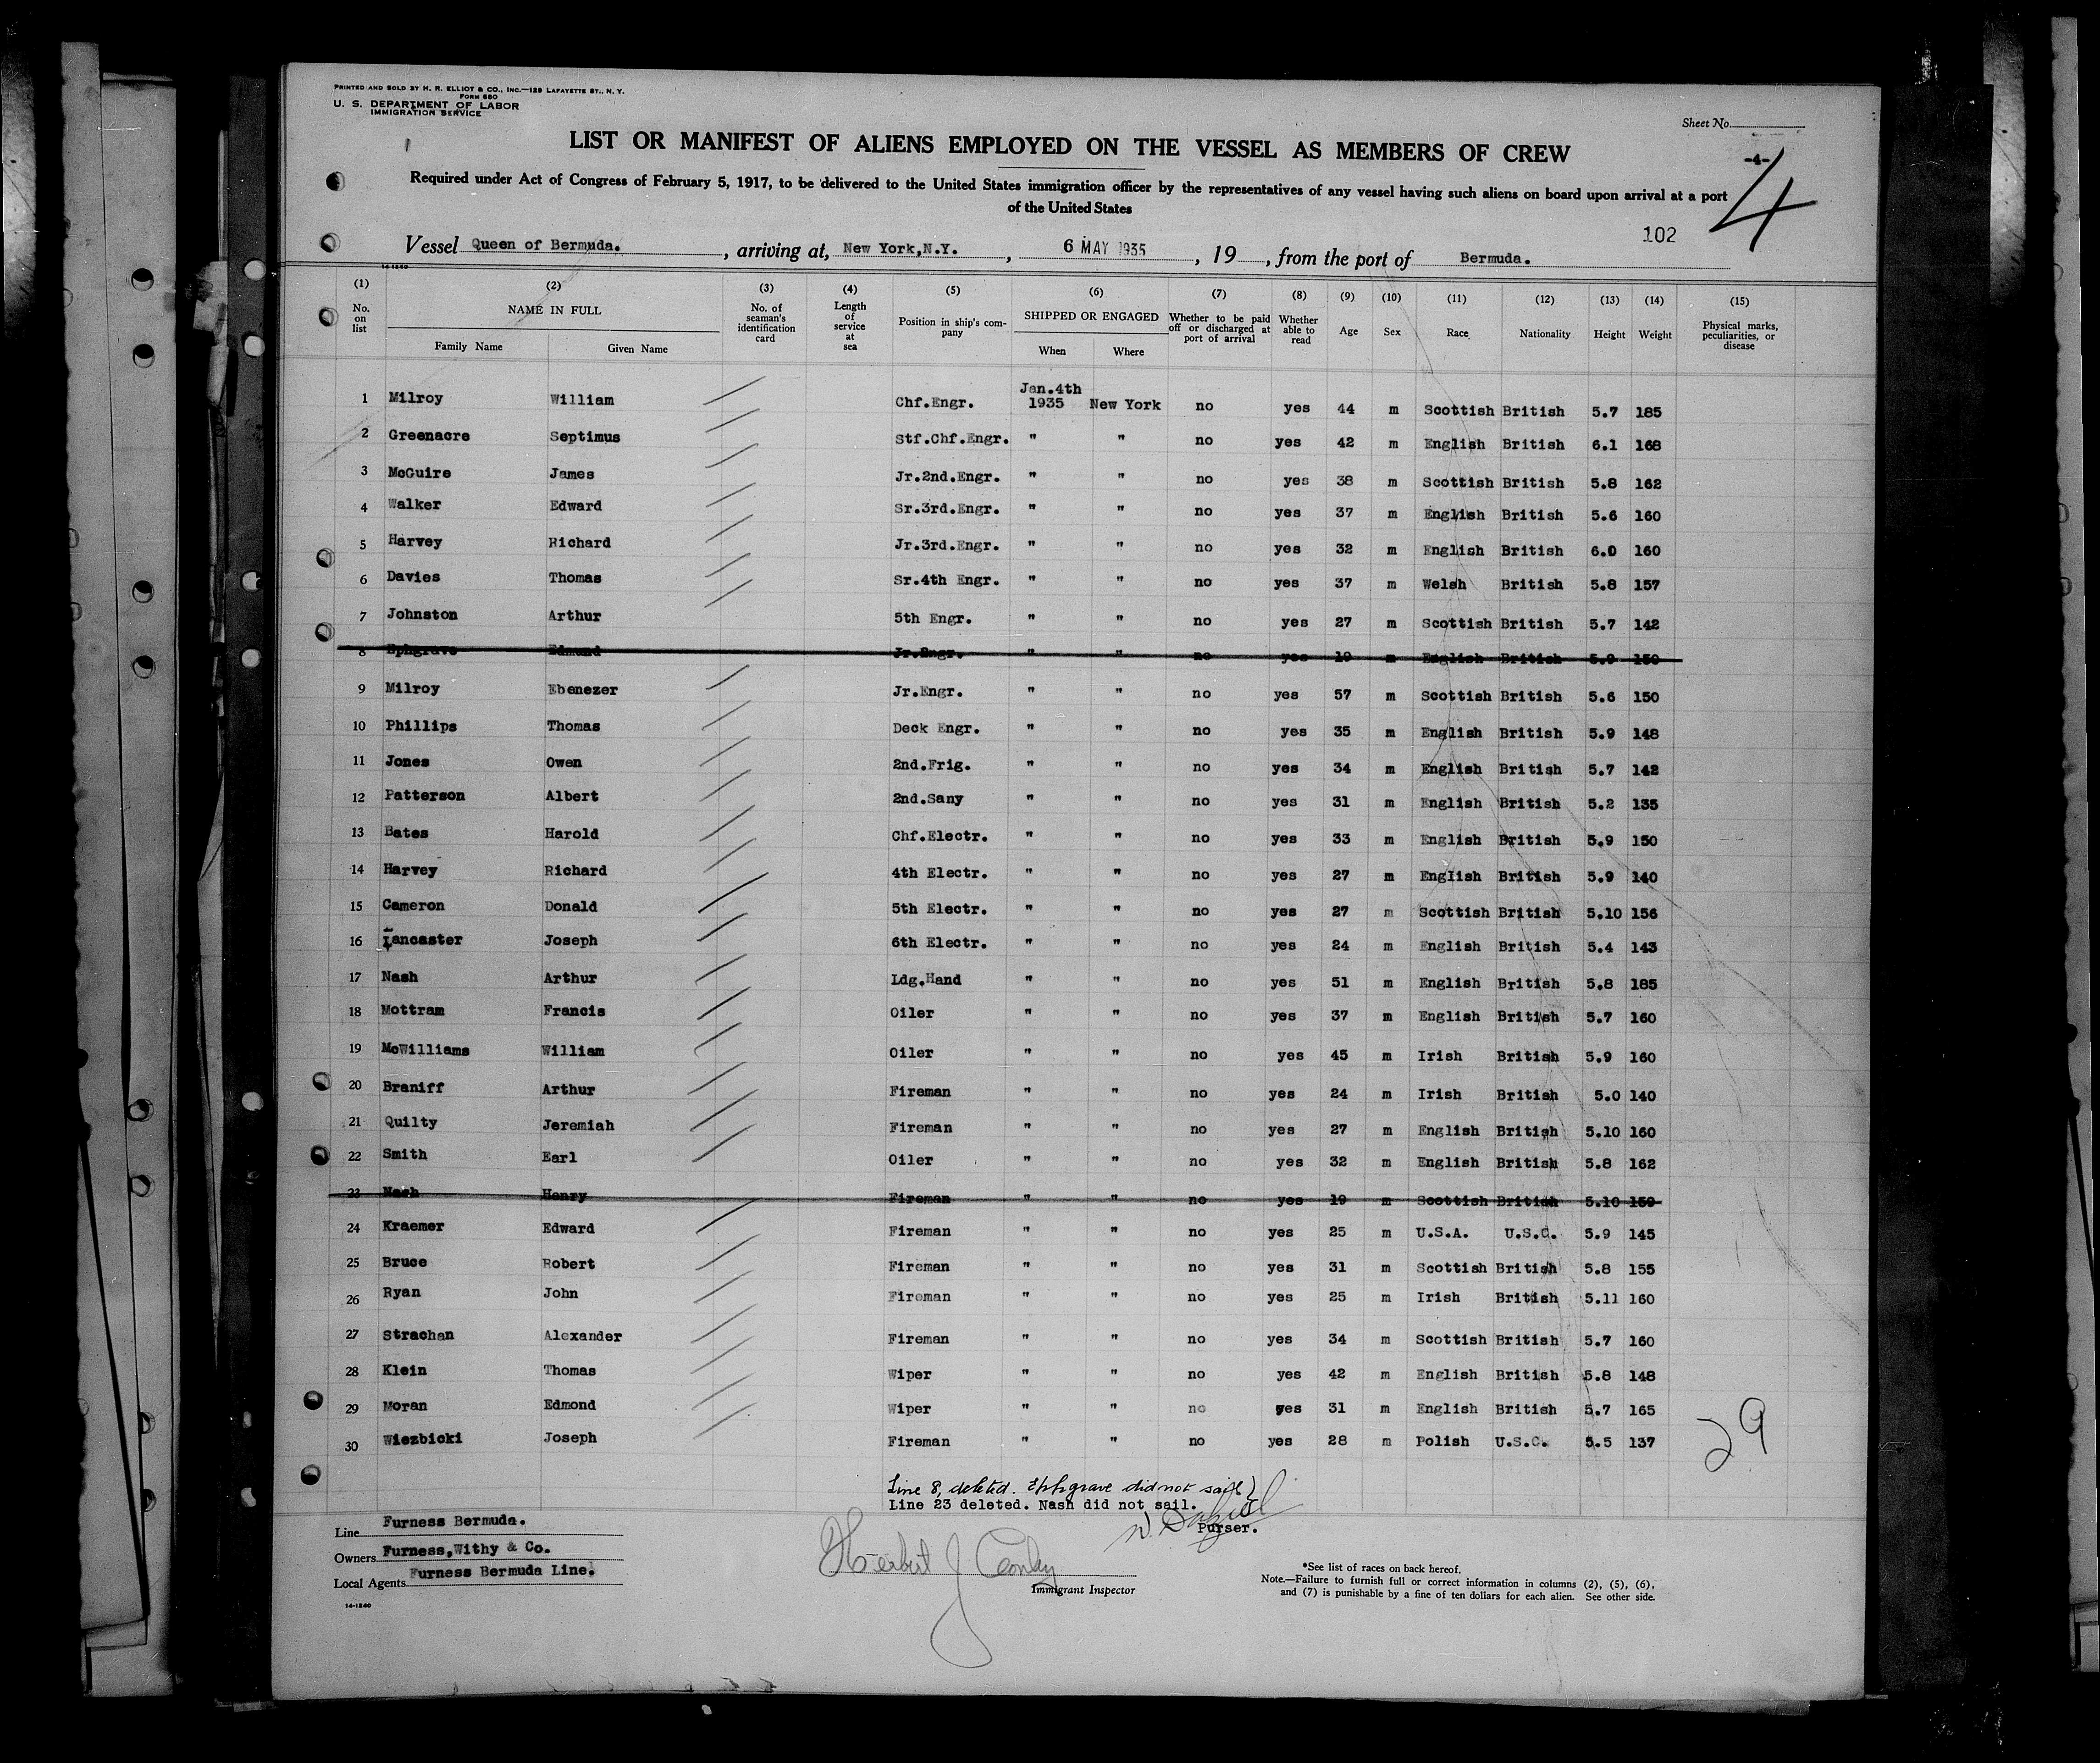 PRINTED AND SOLD BY H. R. ELLIOT & CO., INC.—129 LAFAYETTE ST., N. Y.
FORM 680
U. S. DEPARTMENT OF LABOR
IMMIGRATION SERVICE
Sheet No.
LIST OR MANIFEST OF ALIENS EMPLOYED ON THE VESSEL AS MEMBERS OF CREW
-4-
4
Required under Act of Congress of February 5, 1917, to be delivered to the United States immigration officer by the representatives of any vessel having such aliens on board upon arrival at a port
of the United States
102
Vessel Queen of Bermuda. , arriving at, New York,N.Y. , 6 MAY 1935 , 19 , from the port of Bermuda.
14-1240
(1) (2) (3) (4) (5) (6) (7) (8) (9) (10) (11) (12) (13) (14) (15)
No. on list NAME IN FULL Family Name Given Name No. of seaman's identification card Length of service at sea Position in ship's company SHIPPED OR ENGAGED When Where Whether to be paid off or discharged at port of arrival Whether able to read Age Sex Race Nationality Height Weight Physical marks, peculiarities, or disease
1 Milroy William Chf.Engr. Jan.4th 1935 New York no yes 44 m Scottish British 5.7 185
2 Greenacre Septimus Stf.Chf.Engr. " " no yes 42 m English British 6.1 168
3 McGuire James Jr.2nd.Engr. " " no yes 38 m Scottish British 5.8 162
4 Walker Edward Sr.3rd.Engr. " " no yes 37 m English British 5.6 160
5 Harvey Richard Jr.3rd.Engr. " " no yes 32 m English British 6.0 160
6 Davies Thomas Sr.4th Engr. " " no yes 37 m Welsh British 5.8 157
7 Johnston Arthur 5th Engr. " " no yes 27 m Scottish British 5.7 142
8 Ephgrave Edmund Jr.Engr. " " no yes 19 m English British 5.9 150
9 Milroy Ebenezer Jr.Engr. " " no yes 57 m Scottish British 5.6 150
10 Phillips Thomas Deck Engr. " " no yes 35 m English British 5.9 148
11 Jones Owen 2nd.Frig. " " no yes 34 m English British 5.7 142
12 Patterson Albert 2nd.Sany " " no yes 31 m English British 5.2 135
13 Bates Harold Chf.Electr. " " no yes 33 m English British 5.9 150
14 Harvey Richard 4th Electr. " " no yes 27 m English British 5.9 140
15 Cameron Donald 5th Electr. " " no yes 27 m Scottish British 5.10 156
16 Lancaster Joseph 6th Electr. " " no yes 24 m English British 5.4 143
17 Nash Arthur Ldg.Hand " " no yes 51 m English British 5.8 185
18 Mottram Francis Oiler " " no yes 37 m English British 5.7 160
19 McWilliams William Oiler " " no yes 45 m Irish British 5.9 160
20 Braniff Arthur Fireman " " no yes 24 m Irish British 5.0 140
21 Quilty Jeremiah Fireman " " no yes 27 m English British 5.10 160
22 Smith Earl Oiler " " no yes 32 m English British 5.8 162
23 Nash Henry Fireman " " no yes 19 m Scottish British 5.10 150
24 Kraemer Edward Fireman " " no yes 25 m U.S.A. U.S.C. 5.9 145
25 Bruce Robert Fireman " " no yes 31 m Scottish British 5.8 155
26 Ryan John Fireman " " no yes 25 m Irish British 5.11 160
27 Strachan Alexander Fireman " " no yes 34 m Scottish British 5.7 160
28 Klein Thomas Wiper " " no yes 42 m English British 5.8 148
29 Moran Edmond Wiper " " no yes 31 m English British 5.7 165
30 Wiezbicki Joseph Fireman " " no yes 28 m Polish U.S.C. 5.5 137
29
Line 8, deleted. Ephgrave did not sail
Line 23 deleted. Nash did not sail.
Purser.
Line Furness Bermuda.
Owners Furness,Withy & Co.
Local Agents Furness Bermuda Line.
14-1240
Herbert J Conley
Immigrant Inspector
*See list of races on back hereof.
Note.—Failure to furnish full or correct information in columns (2), (5), (6),
and (7) is punishable by a fine of ten dollars for each alien. See other side.